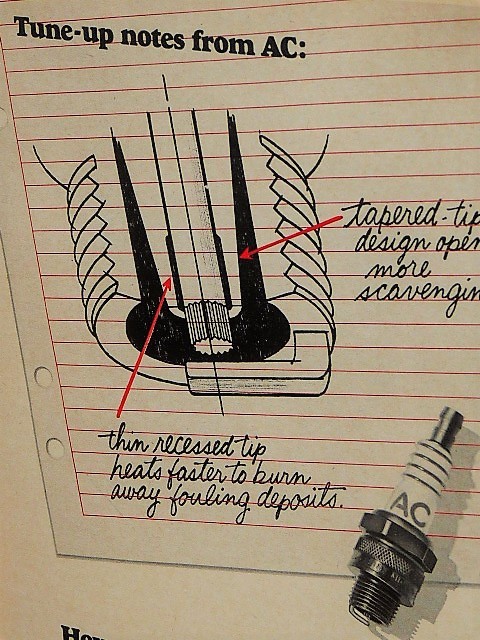 Tune-up notes from AC:
tapered-tip
design open
more
scavengin
thin recessed tip
heats faster to burn
away fouling deposits.
AC
How